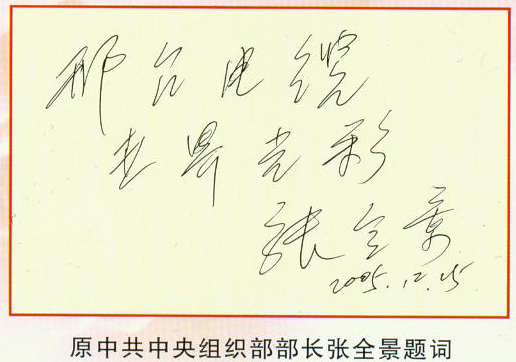 邢台电缆
世界光彩
张全景
2005.12.15
原中共中央组织部部长张全景题词